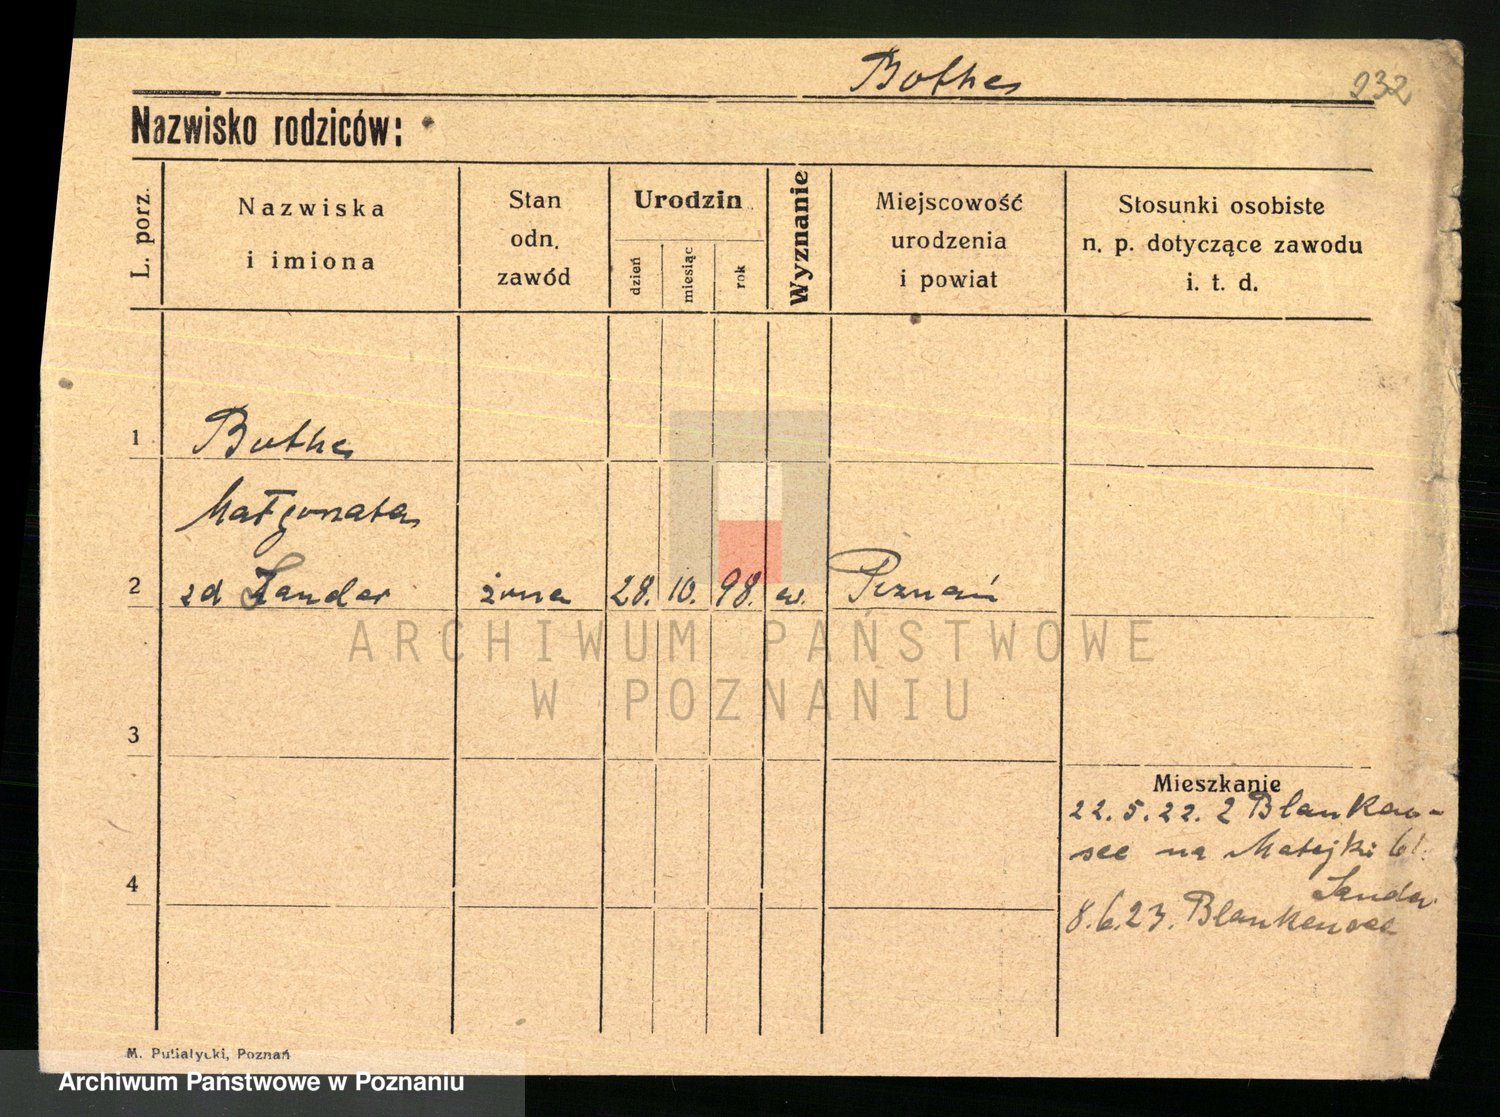 Bothe
232
Nazwisko rodziców:
L. porz.
Nazwiska
i imiona
Stan
odn.
zawód
Urodzin
dzień
miesiąc
rok
Wyznanie
Miejscowość
urodzenia
i powiat
Stosunki osobiste
n. p. dotyczące zawodu
i. t. d.
1 Bothe
Małgorzata
2 zd Sander żona 28. 10. 98. ew. Poznań
ARCHIWUM PAŃSTWOWE
W POZNANIU
3
Mieszkanie
22. 5. 22. z Blanken-
see na Matejki 61.
Sander
4
8.6.23. Blankensee
M. Putiatycki, Poznań
Archiwum Państwowe w Poznaniu